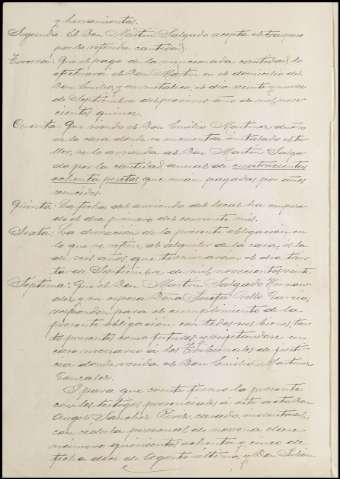 y herramientas.
Segunda: El Don Martin Salgado acepta el traspaso
por la referida cantidad.
Tercera: Que el pago de la mencionada cantidad lo
efectuará el Don Martin en el domicilio del
Don Emilio y en metálico el dia veinte y nueve
de Septiembre del proximo año de mil nove-
cientos quince.
Cuarta: Que siendo el Don Emilio Martinez dueño
en la casa donde se encuentra instalado el ta-
ller, se la arrienda al Don Martin Salga-
do por la cantidad anual de cuatrocientas
ochenta pesetas que seran pagadas por años
vencidos.
Quinta: La fecha del arriendo del local ha empeza-
do el dia primero del corriente mes.
Sexta: La duracion de la presente obligacion en
lo que se refiere al alquiler de la casa, es la
de seis años que terminaran el dia trein-
ta de Septiembre de mil novecientos veinte
Septima: Que el Don Martin Salgado Hernan-
dez y su esposa Doña Josefa Valle Garcia,
responden para el cumplimiento de la
presente obligacion con todos sus bienes, tan-
to presentes como futuros, sujetandose en
caso necesario a los Tribunales de justi-
cia donde resida el Don Emilio Martinez
Gonzalez.
Y para que conste firmo la presente
con los testigos presenciales á este acto Don
Angel Sanchez casado, industrial,
con cedula personal de novena clase
número quinientos ochenta y cinco de
fecha dos de Agosto último, y Don Julian